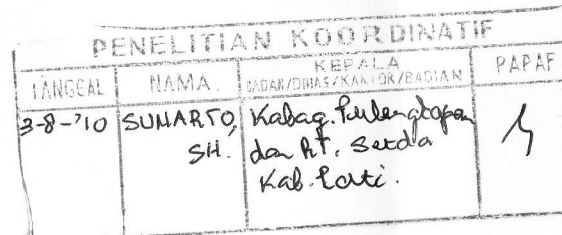 PENELITIAN KOORDINATIF
TANGGAL NAMA KEPALA BADAN/DINAS/KANTOR/BAGIAN PARAF
3-8-'10 SUNARTO, SH. Kabag. Perlengkapan
dan RT. Setda
Kab. Pati.